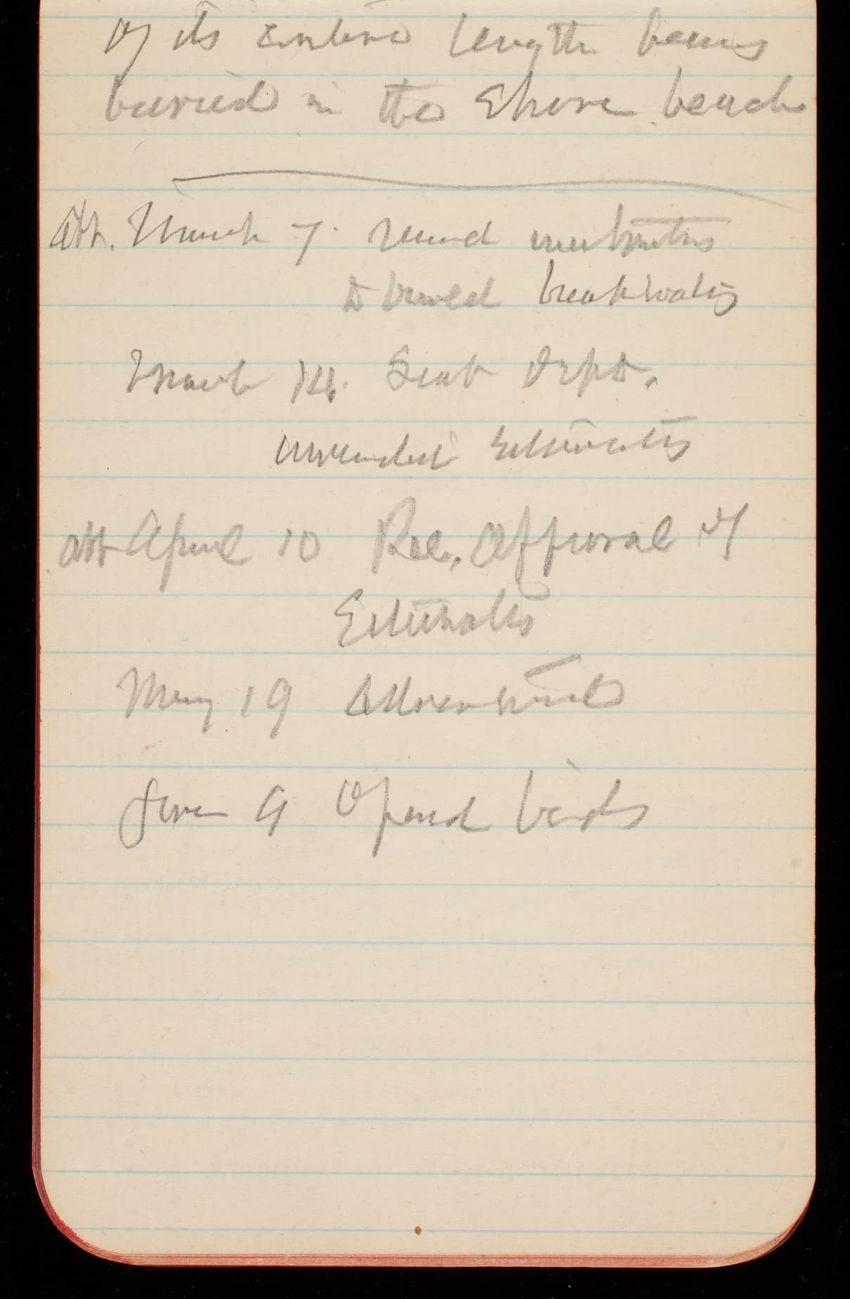 of its entire length being
buried in the shore beach
att. March 7. recd instructions
to build breakwater
March 14. Sent Dept.
amended Estimates
att April 10 Rec. Approval of
Estimates
May 19 Advertised
June 9 Opened bids